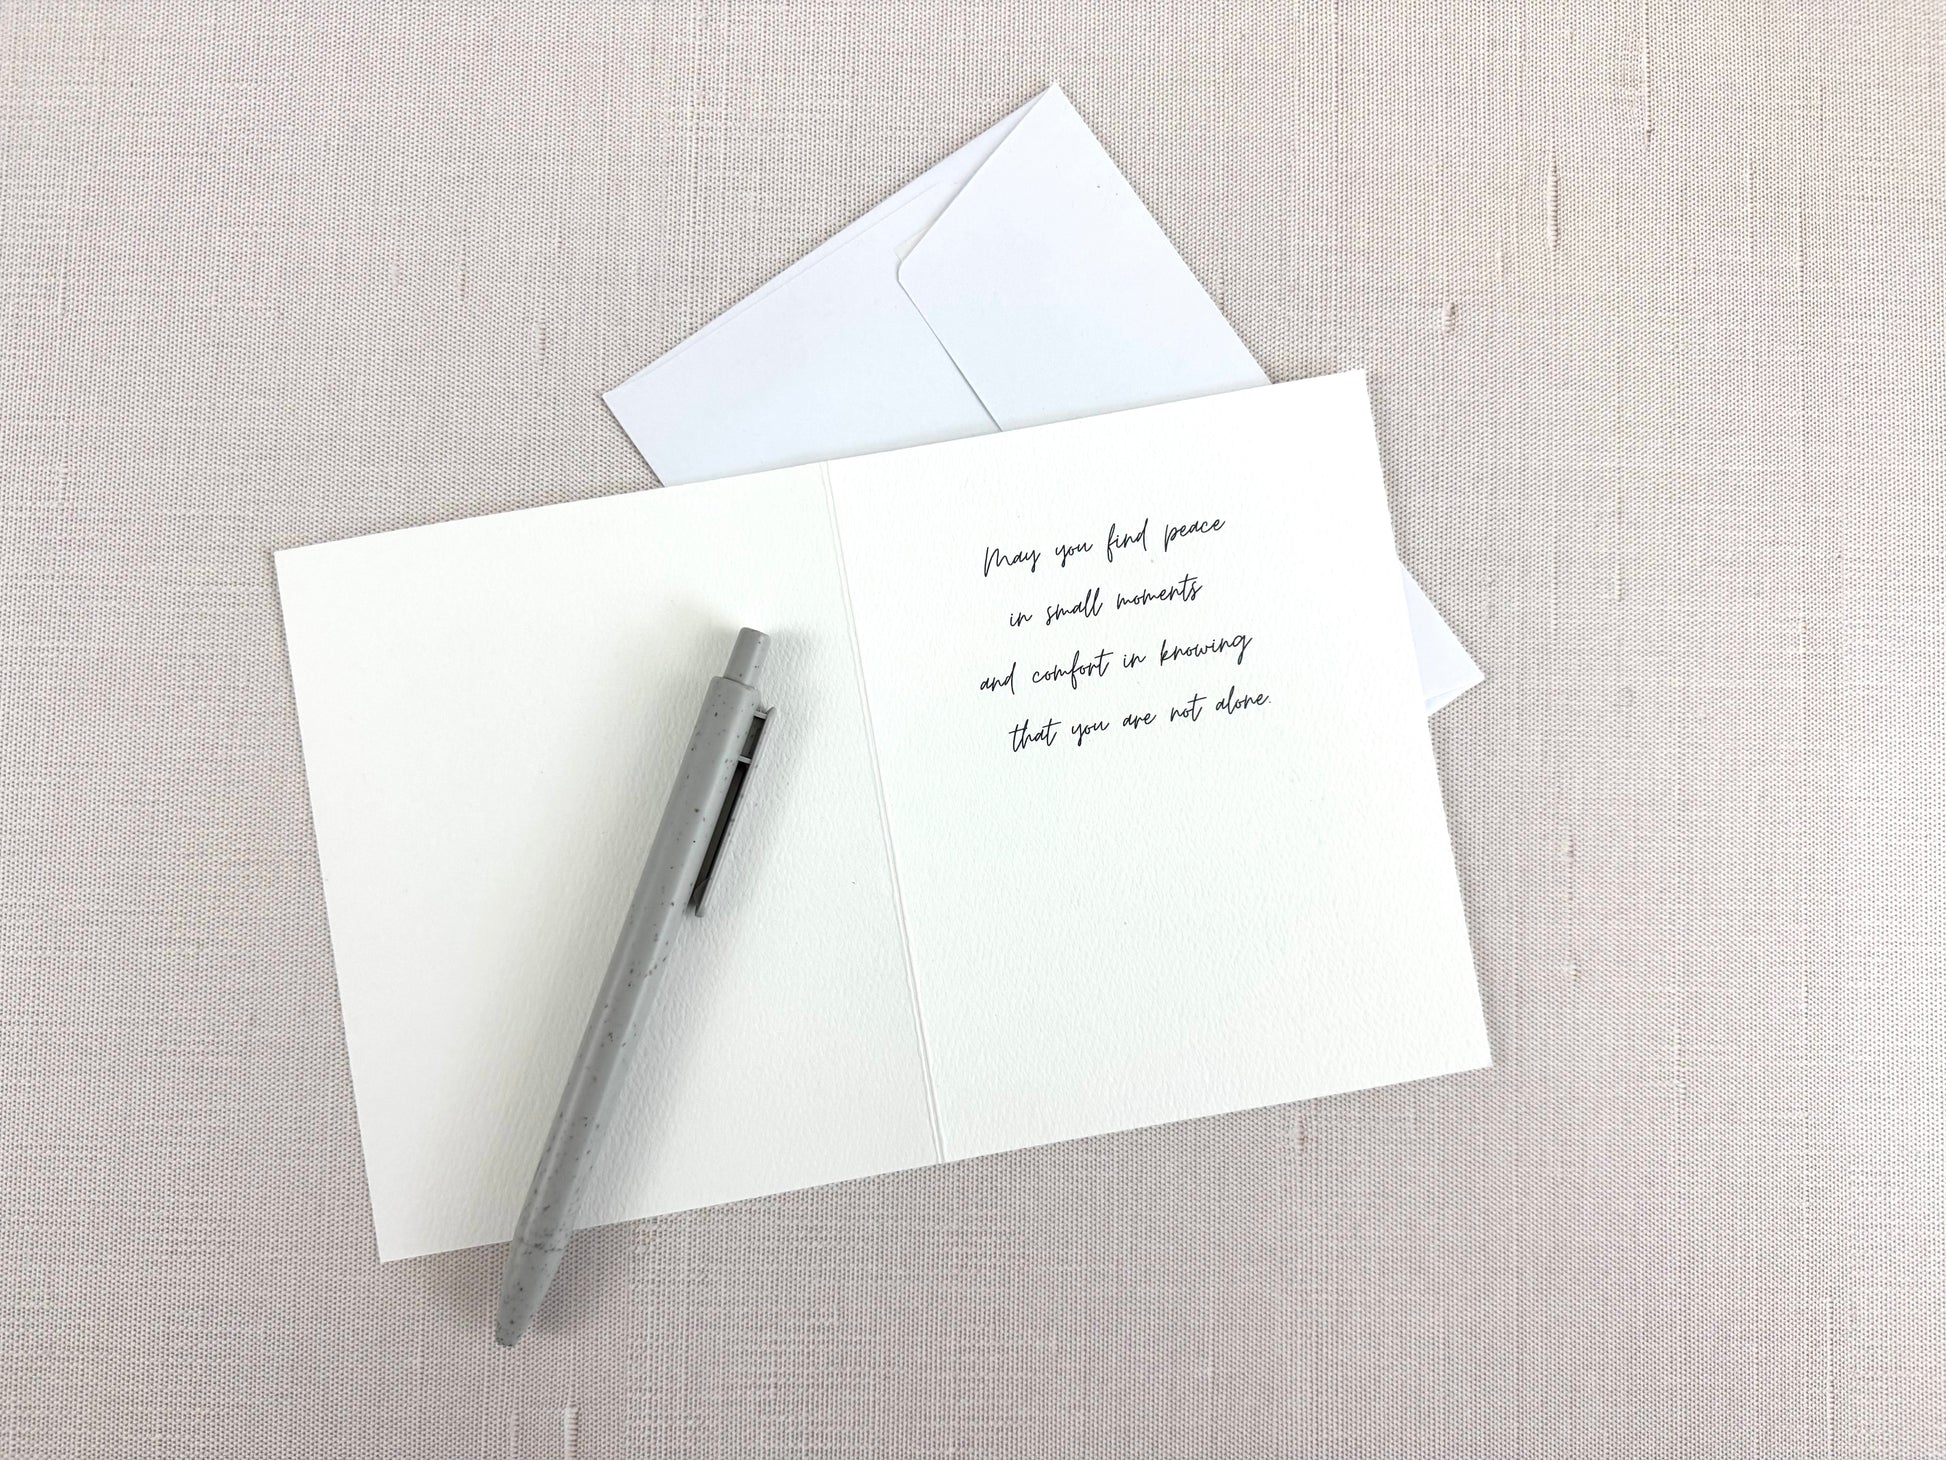 May you find peace
in small moments
and comfort in knowing
that you are not alone.